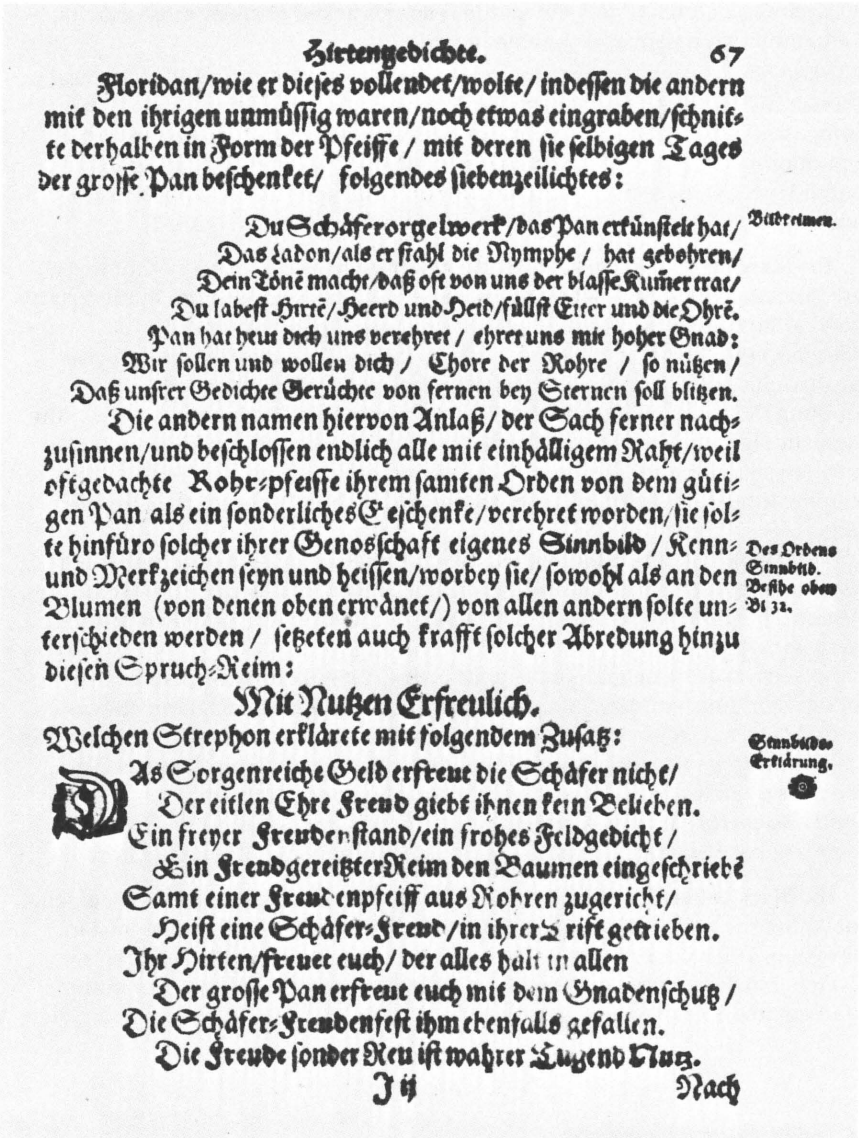 Hirtengedichte. 67
Floridan/wie er dieses vollendet/wolte/ indessen die andern
mit den ihrigen unmüssig waren/noch etwas eingraben/schnit⸗
te derhalben in Form der Pfeiffe / mit deren sie selbigen Tages
der grosse Pan beschenket/ folgendes siebenzeilichtes:
Du Schäferorgelwerk/das Pan erkünstelt hat/
Bildreimen.
Das Ladon/als er stahl die Nymphe / hat gebohren/
Dein Tönē macht/daß oft von uns der blasse Kum̄er trat/
Du labest Hirtē/Heerd und Heid/füllst Euter und die Ohrē.
Pan hat heut dich uns verehret / ehret uns mit hoher Gnad:
Wir sollen und wollen dich / Chore der Rohre / so nützen/
Daß unsrer Gedichte Gerüchte von fernen bey Sternen soll blitzen.
Die andern namen hiervon Anlaß/ der Sach ferner nach⸗
zusinnen/und beschlossen endlich alle mit einhälligem Raht/weil
oftgedachte Rohr⸗pfeiffe ihrem samten Orden von dem güti⸗
gen Pan als ein sonderliches Geschenke/verehret worden/sie sol⸗
te hinfüro solcher ihrer Genosschaft eigenes Sinnbild / Kenn⸗
und Merkzeichen seyn und heissen/worbey sie/ sowohl als an den
Blumen (von denen oben erwänet/) von allen andern solte un⸗
terschieden werden / setzeten auch krafft solcher Abredung hinzu
diesen Spruch⸗Reim:
Des Ordens
Sinnbild.
Besihe oben
Bl 32.
Mit Nutzen Erfreulich.
Welchen Strephon erklärete mit folgendem Zusatz:
Sinnbilds⸗
Erklärung.
DAs Sorgenreiche Geld erfreut die Schäfer nicht/
Der eitlen Ehre Freud giebt ihnen kein Belieben.
Ein freyer Freudenstand/ein frohes Feldgedicht /
Ein Freudgereitzter Reim den Baumen eingeschriebē
Samt einer Freudenpfeiff aus Rohren zugericht/
Heist eine Schäfer⸗Freud/in ihrer Trift getrieben.
Ihr Hirten/freuet euch/ der alles hält in allen
Der grosse Pan erfreut euch mit dem Gnadenschutz /
Die Schäfer⸗Freudenfest ihm ebenfalls gefallen.
Die Freude sonder Reu ist wahrer Tugend Nutz.
J ij Nach